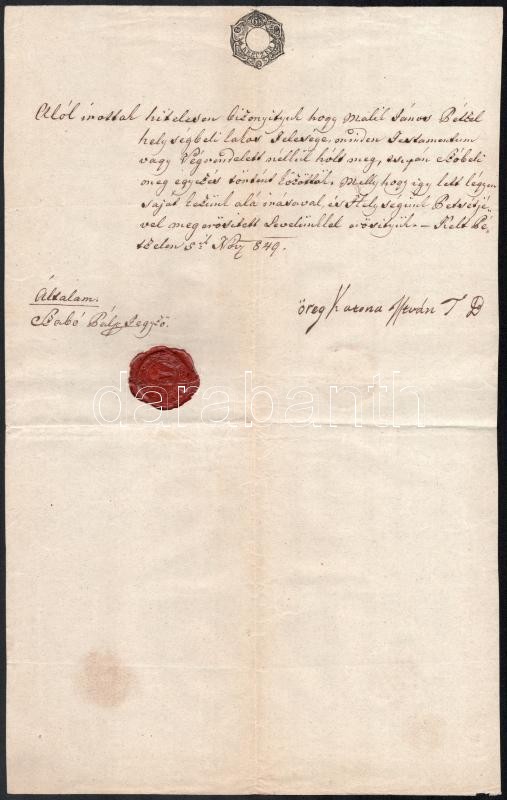 Alól írottak hitelesen bizonyityuk hogy Malik János Pétzel
helységbeli lakos Felesége, minden Testamentum
vagy Végrendelett nélkül hólt meg, csupán szóbeli
meg egyezés történt közöttök, Melly hogy igy lett légyen
saját kezünk alá irásával, és Helységünk Petsétjé-
vel meg erősitett Levelünkkel erősityük. – Kelt Pé-
tzelen 5k Nov 849.
Általam.
Szabó Pál Jegyző.
öreg Katona István T B
darabanth